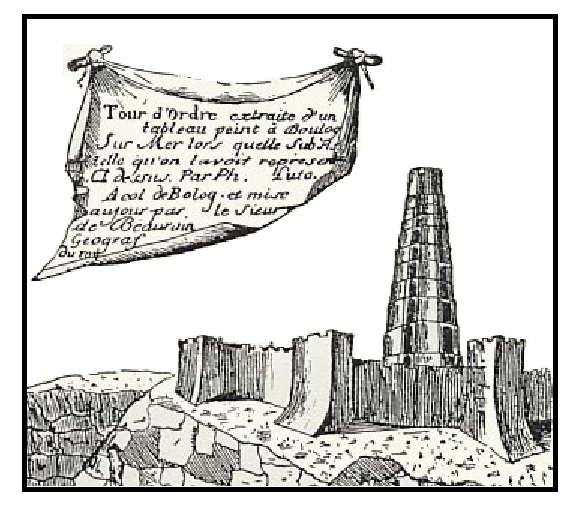 Tour d'Ordre extraite d'un
tableau peint à Boulog
sur Mer lors quelle Subsis
telle qu'on l'avoit represen
Ci dessus. Par Ph. Luto.
Acol de Bolog. et mise
aujour par le Sieur
de Bedursin
Geograf
du roy